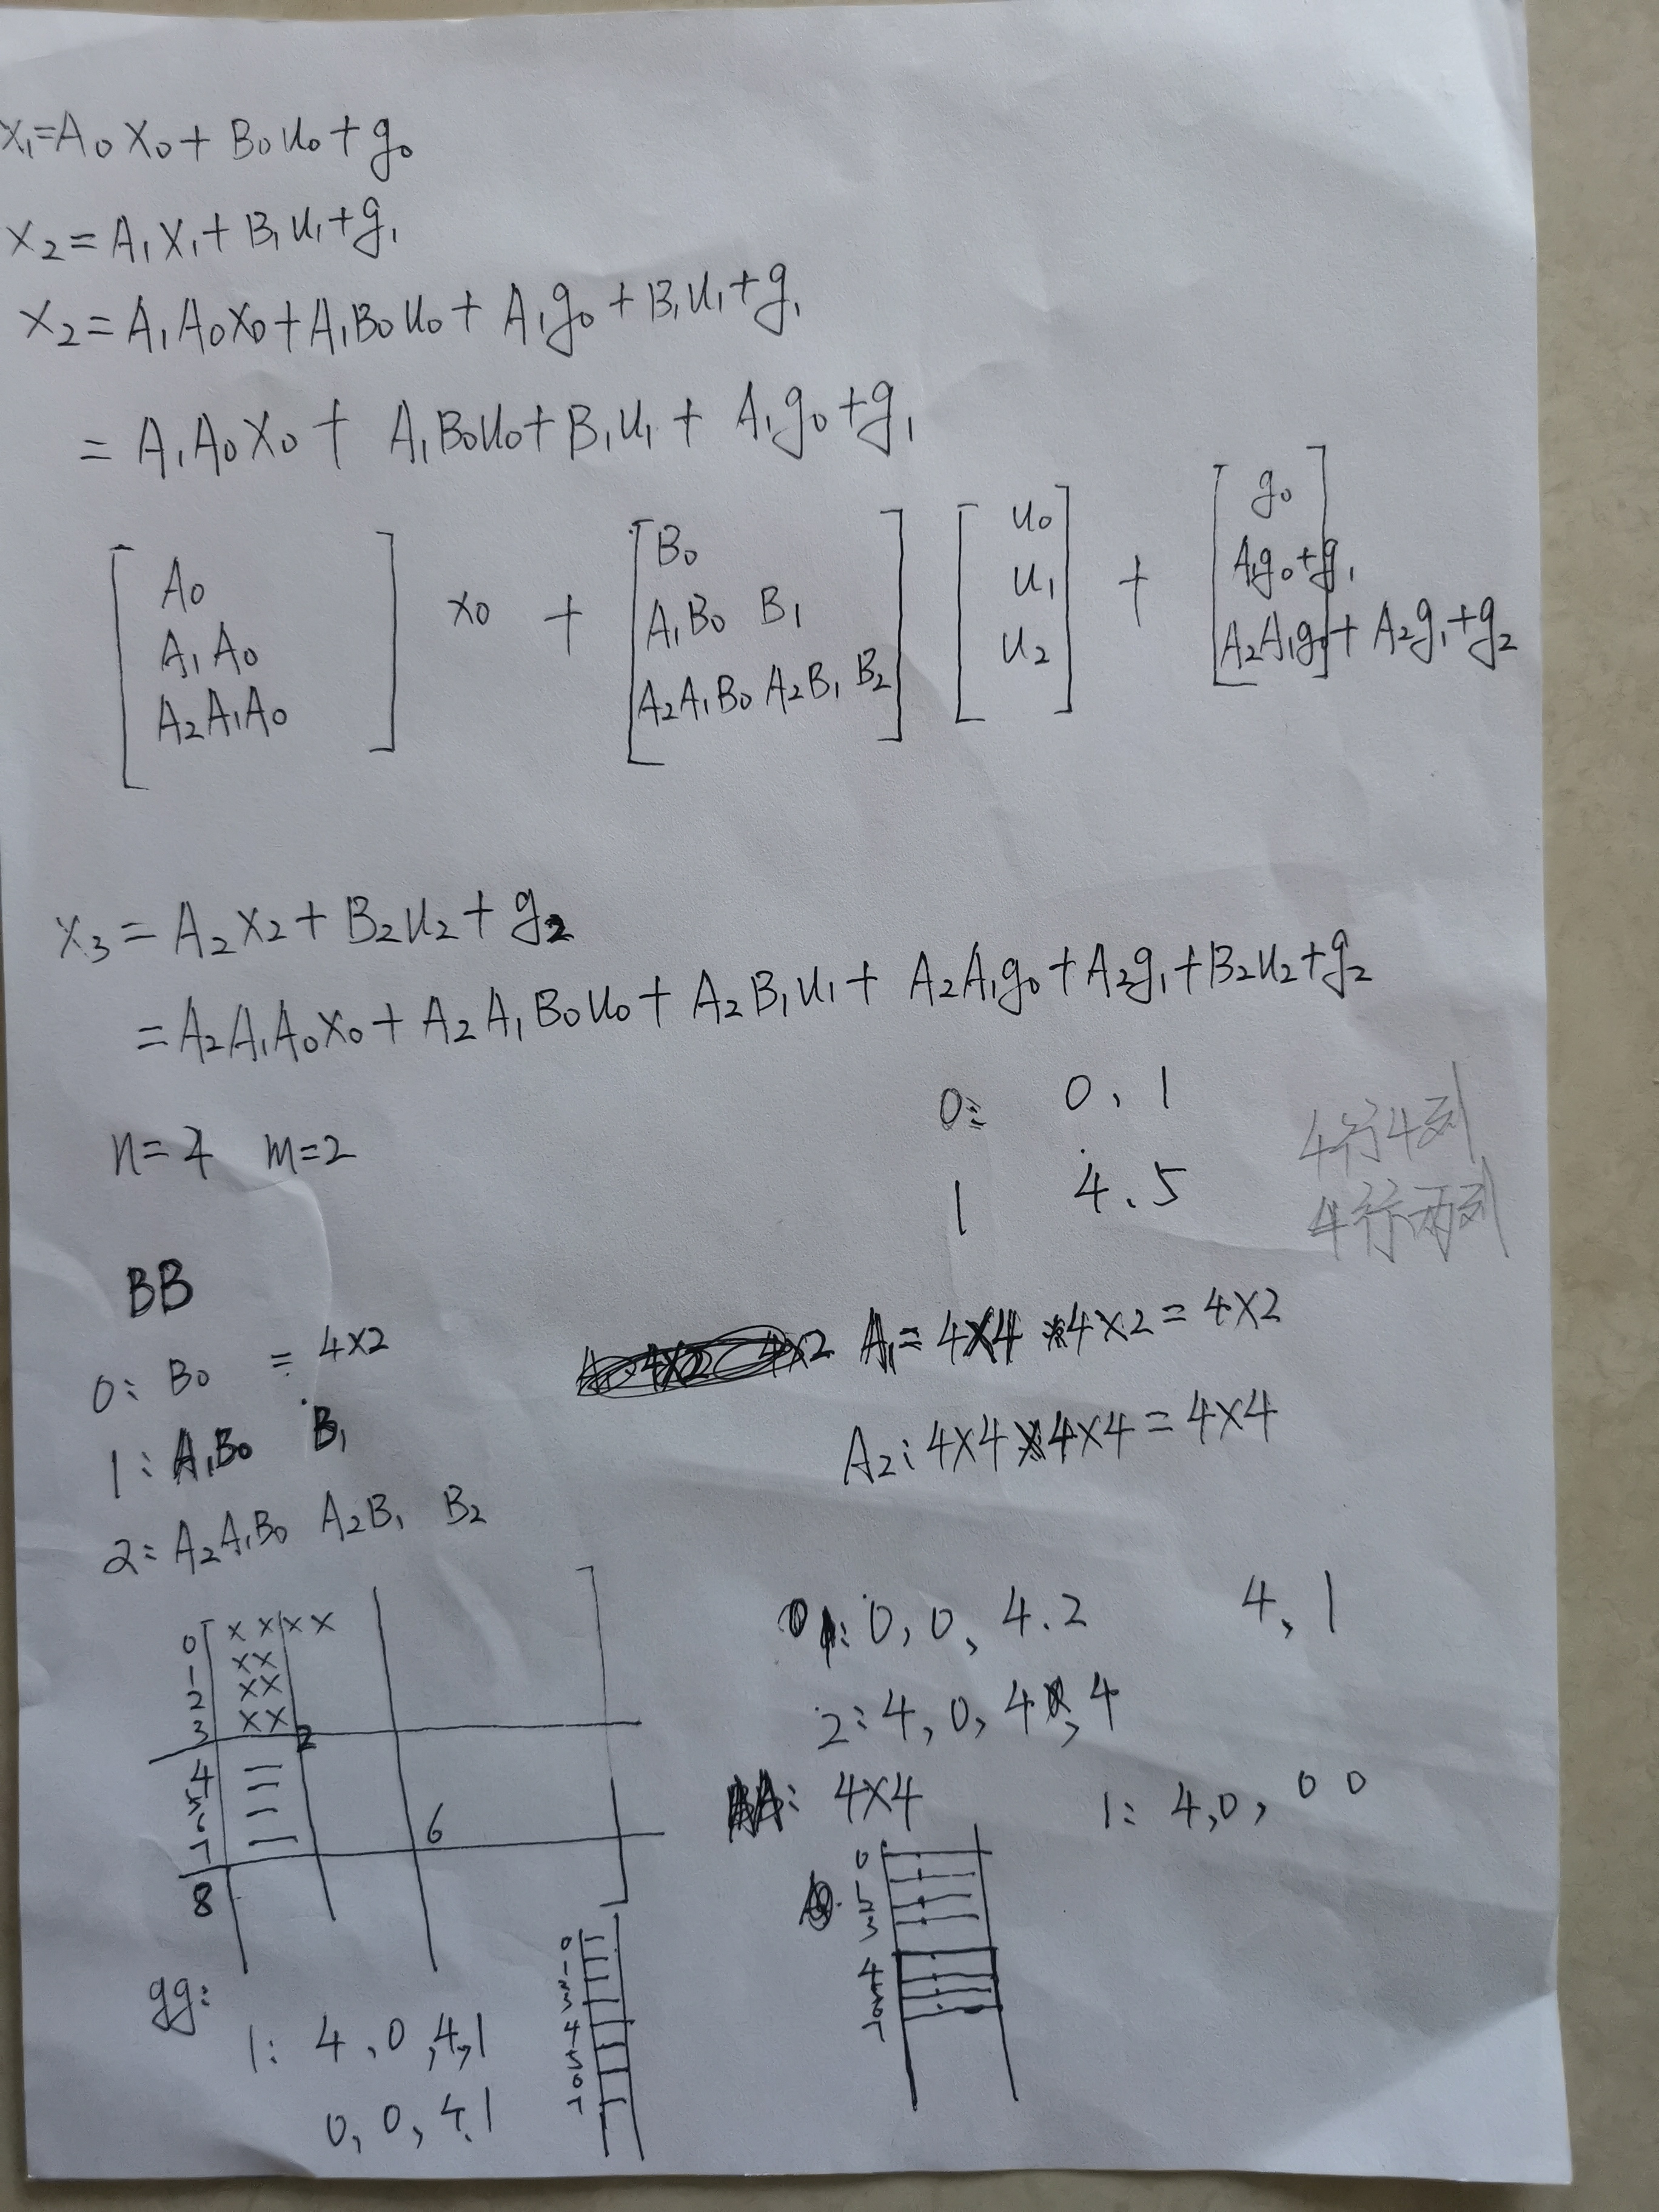 x₁=A₀x₀+B₀u₀+g₀
x₂=A₁x₁+B₁u₁+g₁
x₂=A₁A₀x₀+A₁B₀u₀+A₁g₀+B₁u₁+g₁
=A₁A₀x₀+A₁B₀u₀+B₁u₁+A₁g₀+g₁
A₀ B₀ u₀ g₀
A₁A₀ x₀ + A₁B₀ B₁ u₁ + A₁g₀+g₁
A₂A₁A₀ A₂A₁B₀ A₂B₁ B₂ u₂ A₂A₁g₀+A₂g₁+g₂
x₃=A₂x₂+B₂u₂+g₂
=A₂A₁A₀x₀+A₂A₁B₀u₀+A₂B₁u₁+A₂A₁g₀+A₂g₁+B₂u₂+g₂
0: 0, 1
n=4 m=2
1 4, 5
4行4列
4行两列
BB
0: B₀ = 4×2
1: A₁B₀ B₁
2: A₂A₁B₀ A₂B₁ B₂
A₁=4×4*4×2=4×2
A₂:4×4×4×4=4×4
0 x x x x
1 x x
2 x x
3 x x 2
4
5
6
7 6
8
0: 0, 0, 4.2 4, 1
2: 4, 0, 4, 4
AA: 4×4 1: 4,0, 0 0
0
1
2
3
4
5
6
7
gg:
1: 4, 0, 4, 1
0, 0, 4, 1
0
1
2
3
4
5
6
7